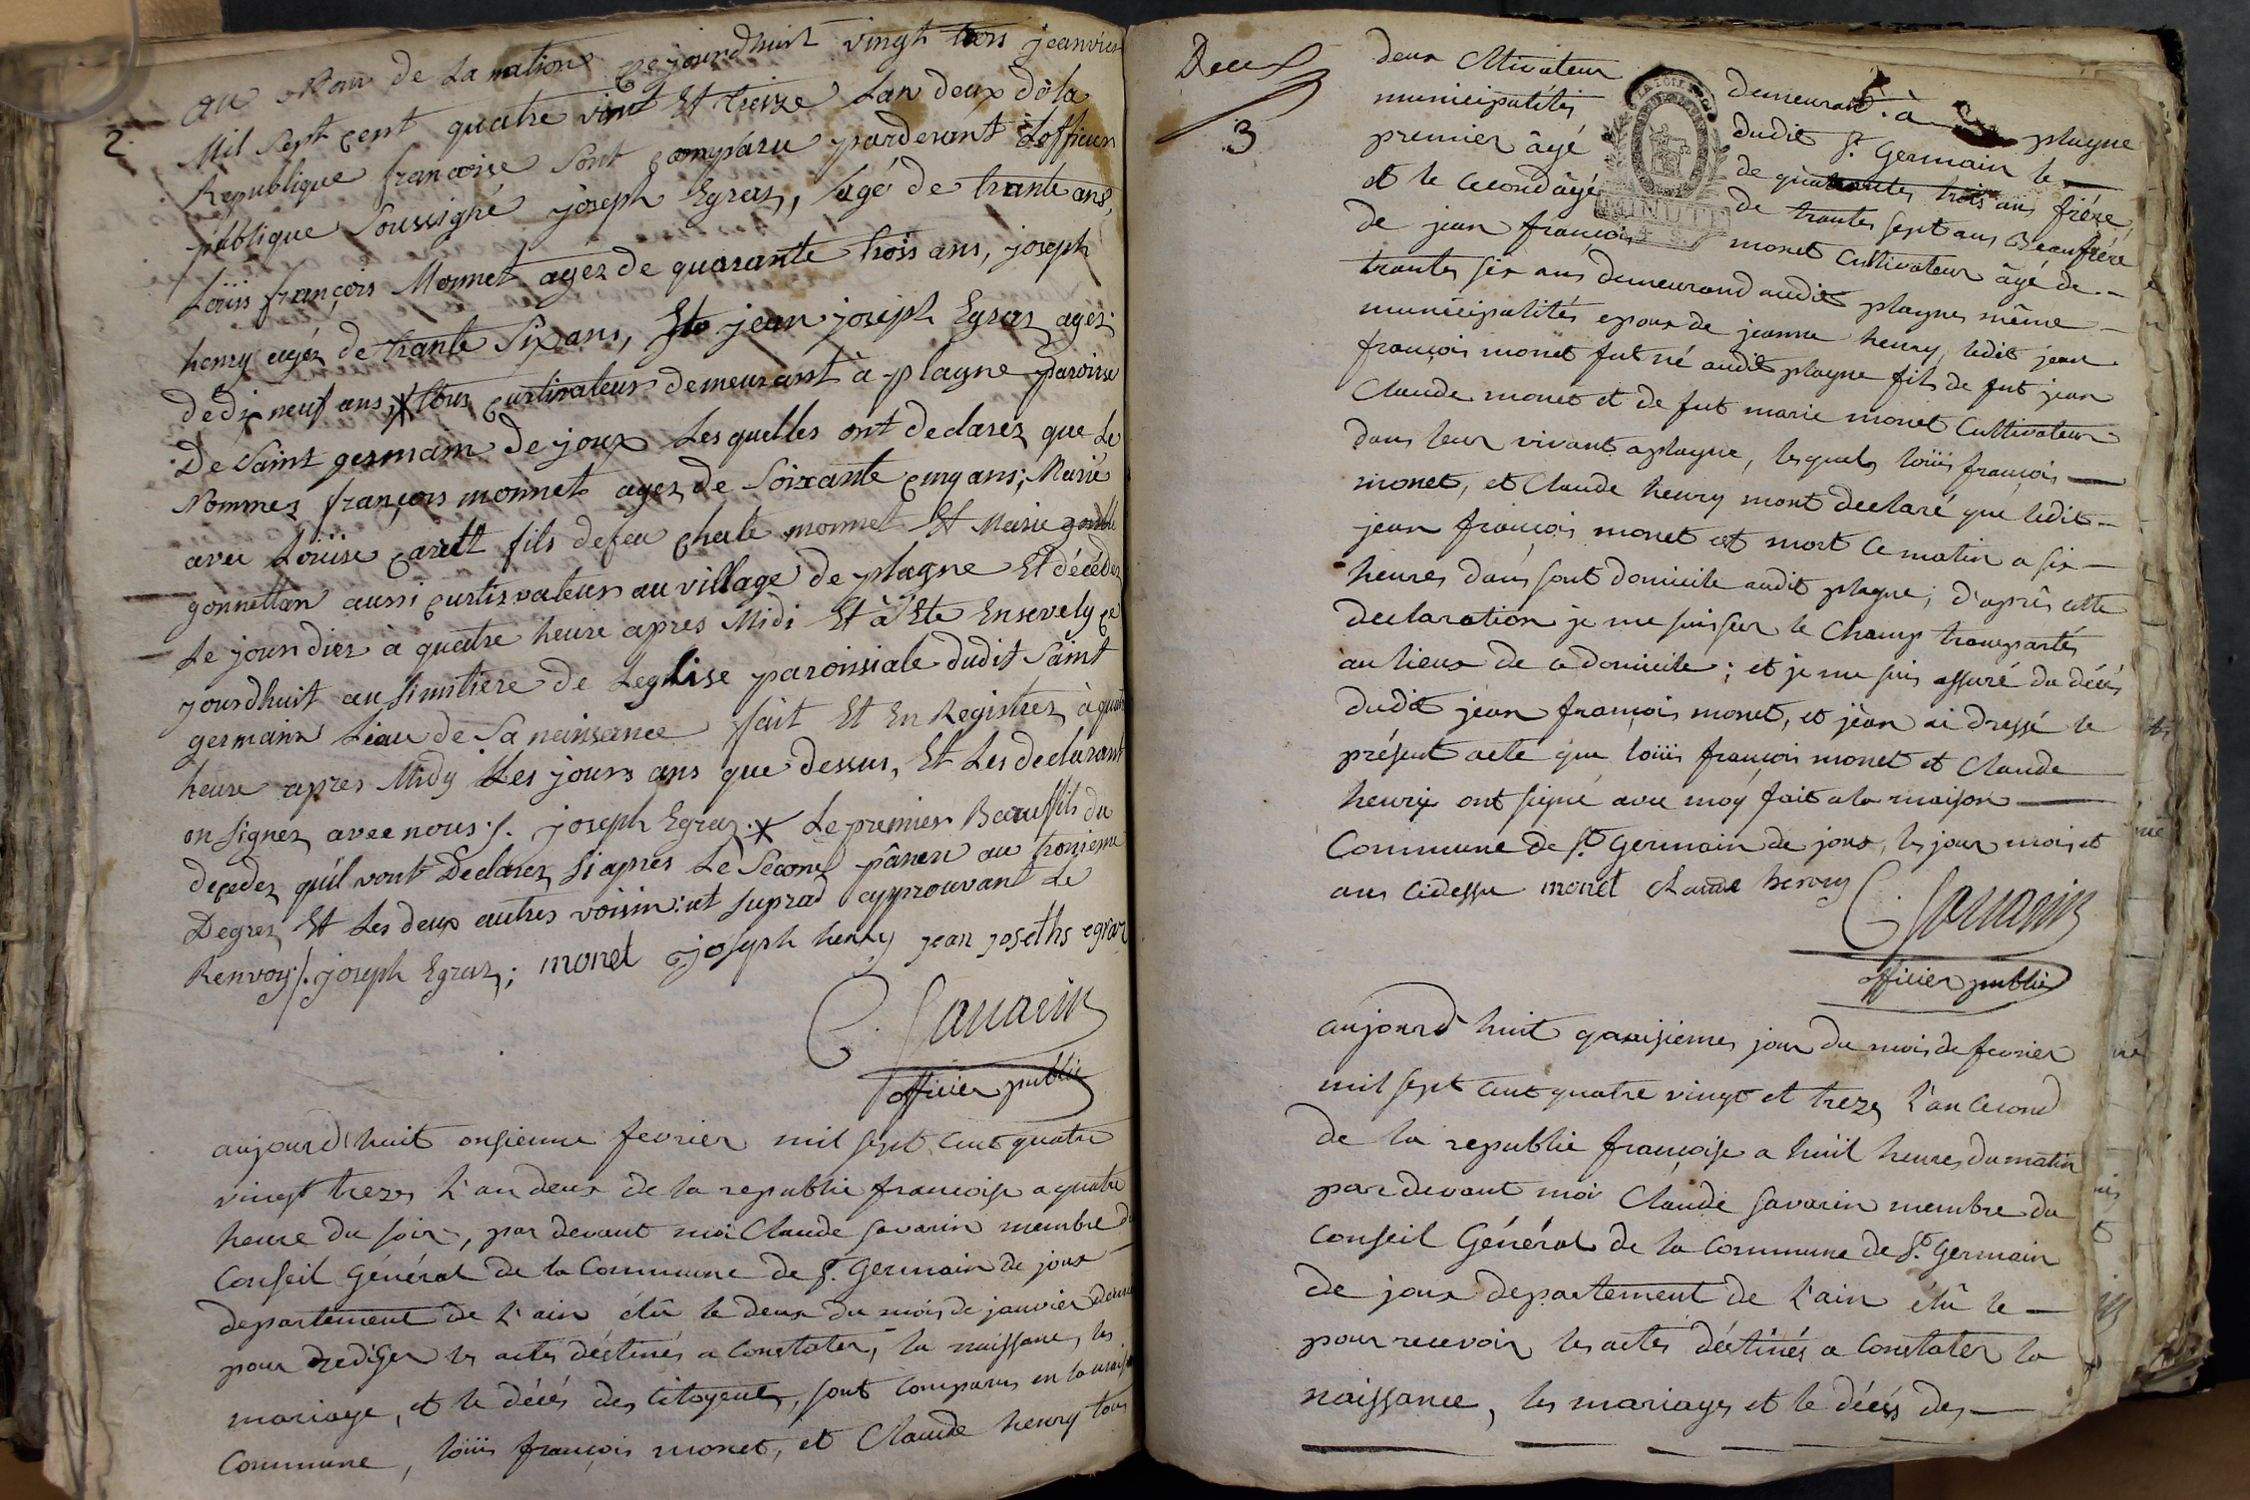 2.
au Nom de La nation Cejourdhuit vingt trois jeanvier
Mil Sept Cent quatre vint Et treize Lan deux dela
Republique francoise Sont Comparu pardevant Lofficier
publique Soussigné joseph Egraz, agé de trante ans,
Loüis françois Monnet agez de quarante trois ans, joseph
henry agez de trante Six ans, Et jean joseph Egraz agez
de dix neuf ans, * tous Curtivateur demeurant à plagne paroisse
De Saint germain De joux Les quelles ont Declarez que Le
Nommez françois monnet agez de Soixante Cinq ans; Marié
avec Loüise fils de feu monnet Et Marie
gonnettan aussi Curtivateur au village de plagne Et décédez
Le jour dier à quatre heure apres Midi Et à Ete Ensevely Ce
jourdhuit au Simitiere de Leglise paroissiale dudit Saint
germain Lieau de Sa naissance fait Et En Registrez à quatre
heure apres Midy Les jours ans que dessus, Et Les declarant
on Signez avec nous ./. joseph Egraz. * Le premier Beauffils du
decedez quil vont Declarez Siapres Le Second au troisieme
Degrez Et Les deux autres voisin: ut Suprad approuvant Le
Renvoy ./. joseph Egraz; monet joseph henry jean joseths egraz
C. Savarin
officier public
aujourd'huit onsieme fevrier mil sept cent quatre
vingt treze L'an deux de la republic françoise a quatre
heure du soir, par devant moi Claude savarin membre du
Conseil Général de la Commune de St. Germain de joux
departement de L'ain élû le deux du mois de janvier
pour redigér les actes déstinés a Constater, la naissance, les
mariage, et le décés des Citoyens, sont Comparus en la maison
Commune, loüis françois monet, et Claude henry tous
Deux
3
deux Cltivateur demeurand à plagne
municipalités dudit St. Germain le
premier âgé de quarantes trois ans frére,
et le Cecond âgé de trantes sept ans Beaufrére
de jean françois monet Cultivateur âgé de
trantes six ans demeurand audit plagne même
municipalités epoux de jeanne henry, ledit jean
françois monet fut né audit plagne fils de fut jean
Claude monet et de fut marie monet Cultivateur
dans leur vivant a plagne, lesquels loüis françois
monet, et Claude henry mont declaré que ledit
jean françois monet est mort Ce matin a six
heures dans sont domicile audit plagne; d'aprês cette
declaration je me suis sur le Champ transparté
au lieux de Ce domicile; et je me suis assuré du décés
dudit jean françois monet, et jean ai dressé le
présent acte que loüis françois monet et Claude
henry ont signé avec moy fait a la maison
Commune de St. Germain de joux, les jour mois et
ans Cidessu monet claude henry
C. Savarin
officier public
aujourd'huit jour du mois de fevrier
mil sept cent quatre vingt et treze L'an Cecond
de la republic françoise a huit heures du matin
par devant moi Claude savarin membre du
Conseil Général de la Commune de St. Germain
de joux departement de L'ain élû le
pour recevoir les actes déstinés a Constater la
naissance, les mariages et le décés des